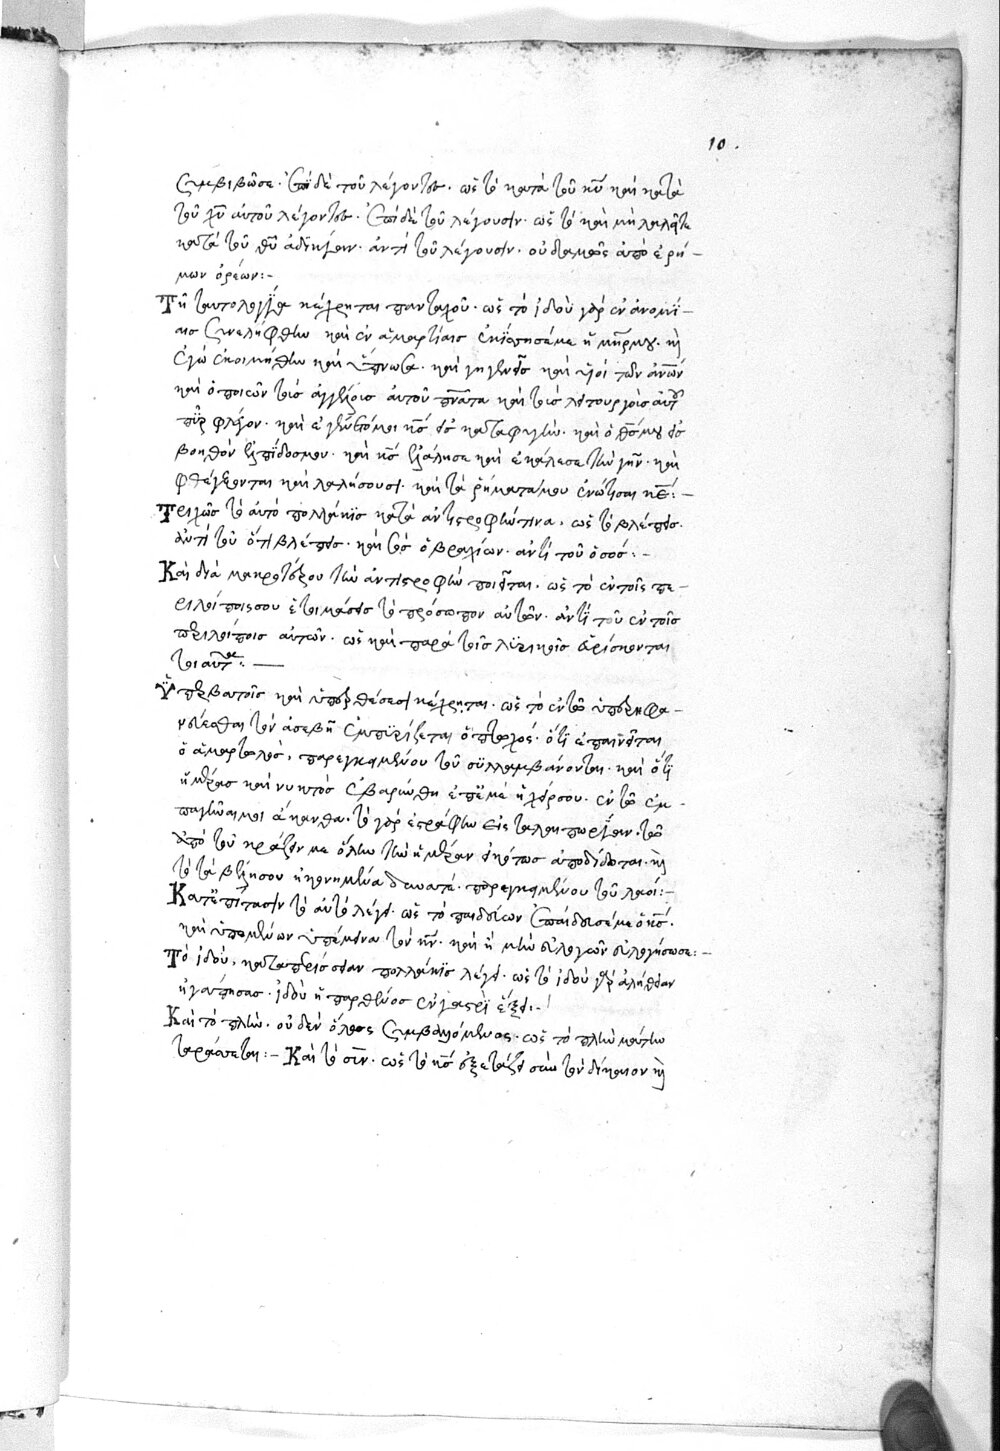 10.
συμβιβῶσε. ἐπὶ δὲ τοῦ λέγοντες. ὡς τὸ κατὰ τοῦ κυ καὶ κατὰ
τοῦ χυ αὐτοῦ λέγοντες. ἐπὶ δὲ τοῦ λέγουσιν. ὡς τὸ καὶ μὴ λαλεῖτε
κατὰ τοῦ θυ ἀδικίαν. ἀντὶ τοῦ λέγουσιν. οὐδαμῶς ἀπὸ ἐρή-
μων ὀρέων:-
Τῇ ταυτολογίᾳ κέχρηται πανταχοῦ. ὡς τὸ ἰδοὺ γὰρ ἐν ἀνομί-
αις συνελήφθην καὶ ἐν ἁμαρτίαις ἐκίσσησέ με ἡ μηρ μου. καὶ
ἐγὼ ἐκοιμήθην καὶ ὕπνωσα. καὶ γηγενεῖς καὶ υἱοὶ τῶν ἀνων
καὶ ὁ ποιῶν τοὺς ἀγγέλους αὐτοῦ πνατα καὶ τοὺς λειτουργοὺς αὐτοῦ
πῦρ φλέγον. καὶ ἐγένετό μοι κς εἰς καταφυγὴν. καὶ ὁ θς μου εἰς
βοηθὸν ἐλπίδος μου. καὶ κς ἐλάλησε καὶ ἐκάλεσε τὴν γῆν. καὶ
φθέγξονται καὶ λαλήσουσι. καὶ τὰ ῥήματά μου ἐνώτισαι κε:-
Τρίχως τὸ αὐτὸ πολλάκις κατὰ ἀντιστροφήν τινα, ὡς τὸ βλέπεις.
ἀντὶ τοῦ ὅτι βλέπεις. καὶ τὸς ὁ βραχίων. ἀντὶ τοῦ ὁ σός:-
Καὶ διὰ μακροτέρου τὴν ἀντιστροφὴν ποιεῖται. ὡς τὸ ἐν τοῖς πε-
ριλοίποις σου ἑτοιμάσεις τὸ πρόσωπον αὐτῶν. ἀντὶ τοῦ ἐν τοῖς
περιλοίποις αὐτῶν. ὡς καὶ παρὰ τοῖς λυρικοῖς εὑρίσκονται
τοιαῦτα:-
Ὑπερβατοῖς καὶ ὑπερθέσεσι κέχρηται. ὡς τὸ ἐν τῷ ὑπερηφα-
νεύεσθαι τὸν ἀσεβῆ ἐμπυρίζεται ὁ πτωχός. ὅτι ἐπαινεῖται
ὁ ἁμαρτωλὸς, παρεγκειμένου τοῦ συλλαμβάνονται. καὶ ὅτι
ἡμέρας καὶ νυκτὸς ἐβαρύνθη ἐπ' ἐμὲ ἡ χείρ σου. ἐν τῷ ἐμ-
παγῆναί μοι ἄκανθα. τὸ γὰρ ἐστράφην εἰς ταλαιπωρίαν. τῷ
ἀπὸ τοῦ κράζειν με ὅλην τὴν ἡμέραν εἰκότως ἀποδίδοται. καὶ
τὸ τὰ βέλη σου ἠκονημένα δυνατέ. παρεγκειμένου τοῦ λαοί:-
Κατ' ἐπίτασιν τὸ αὐτὸ λέγει. ὡς τὸ παιδεύων ἐπαίδευσέ με ὁ κς.
καὶ ὑπομένων ὑπέμεινα τὸν κν. καὶ ἢ μὴν εὐλογῶν εὐλογήσω σε:-
Τὸ ἰδού, κατὰ περισσείαν πολλάκις λέγει. ὡς τὸ ἰδοὺ γὰρ ἀλήθειαν
ἠγάπησας. ἰδοὺ ἡ παρθένος ἐν γαστρὶ ἕξει.-
Καὶ τὸ πλὴν. οὐδὲν ὅλως συμβαλλόμενος. ὡς τὸ πλὴν μάτην
ταράσσεται:- Καὶ τὸ σίν. ὡς τὸ κς ἐξετάζει σὺν τὸν δίκαιον καὶ